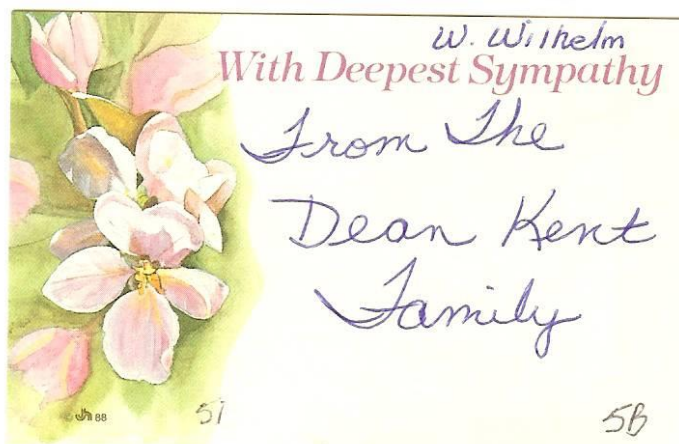 W. Wilhelm
With Deepest Sympathy
From The
Dean Kent
Family
88
51
5B